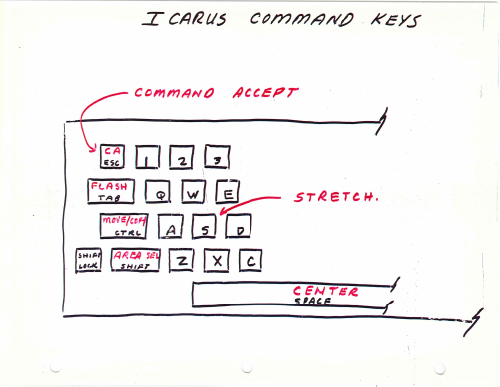 ICARUS COMMAND KEYS
COMMAND ACCEPT
CA
ESC
1 2 3
FLASH
TAB
Q W E
STRETCH.
MOVE/COPY
CTRL
A S D
SHIFT
LOCK
AREA SEL
SHIFT
Z X C
CENTER
SPACE